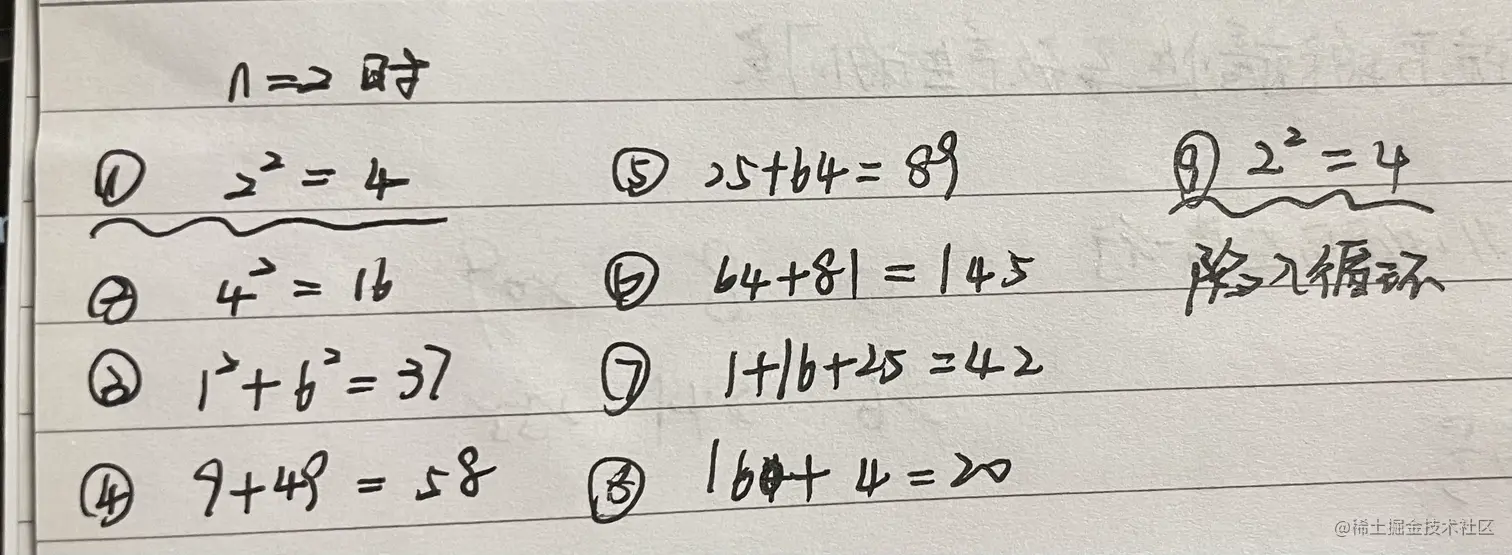 n=2 时
① 2² = 4
② 4² = 16
③ 1² + 6² = 37
④ 9+49 = 58
⑤ 25+64 = 89
⑥ 64+81 = 145
⑦ 1+16+25 = 42
⑧ 16+ 4 = 20
⑨ 2² = 4
陷入循环
@稀土掘金技术社区